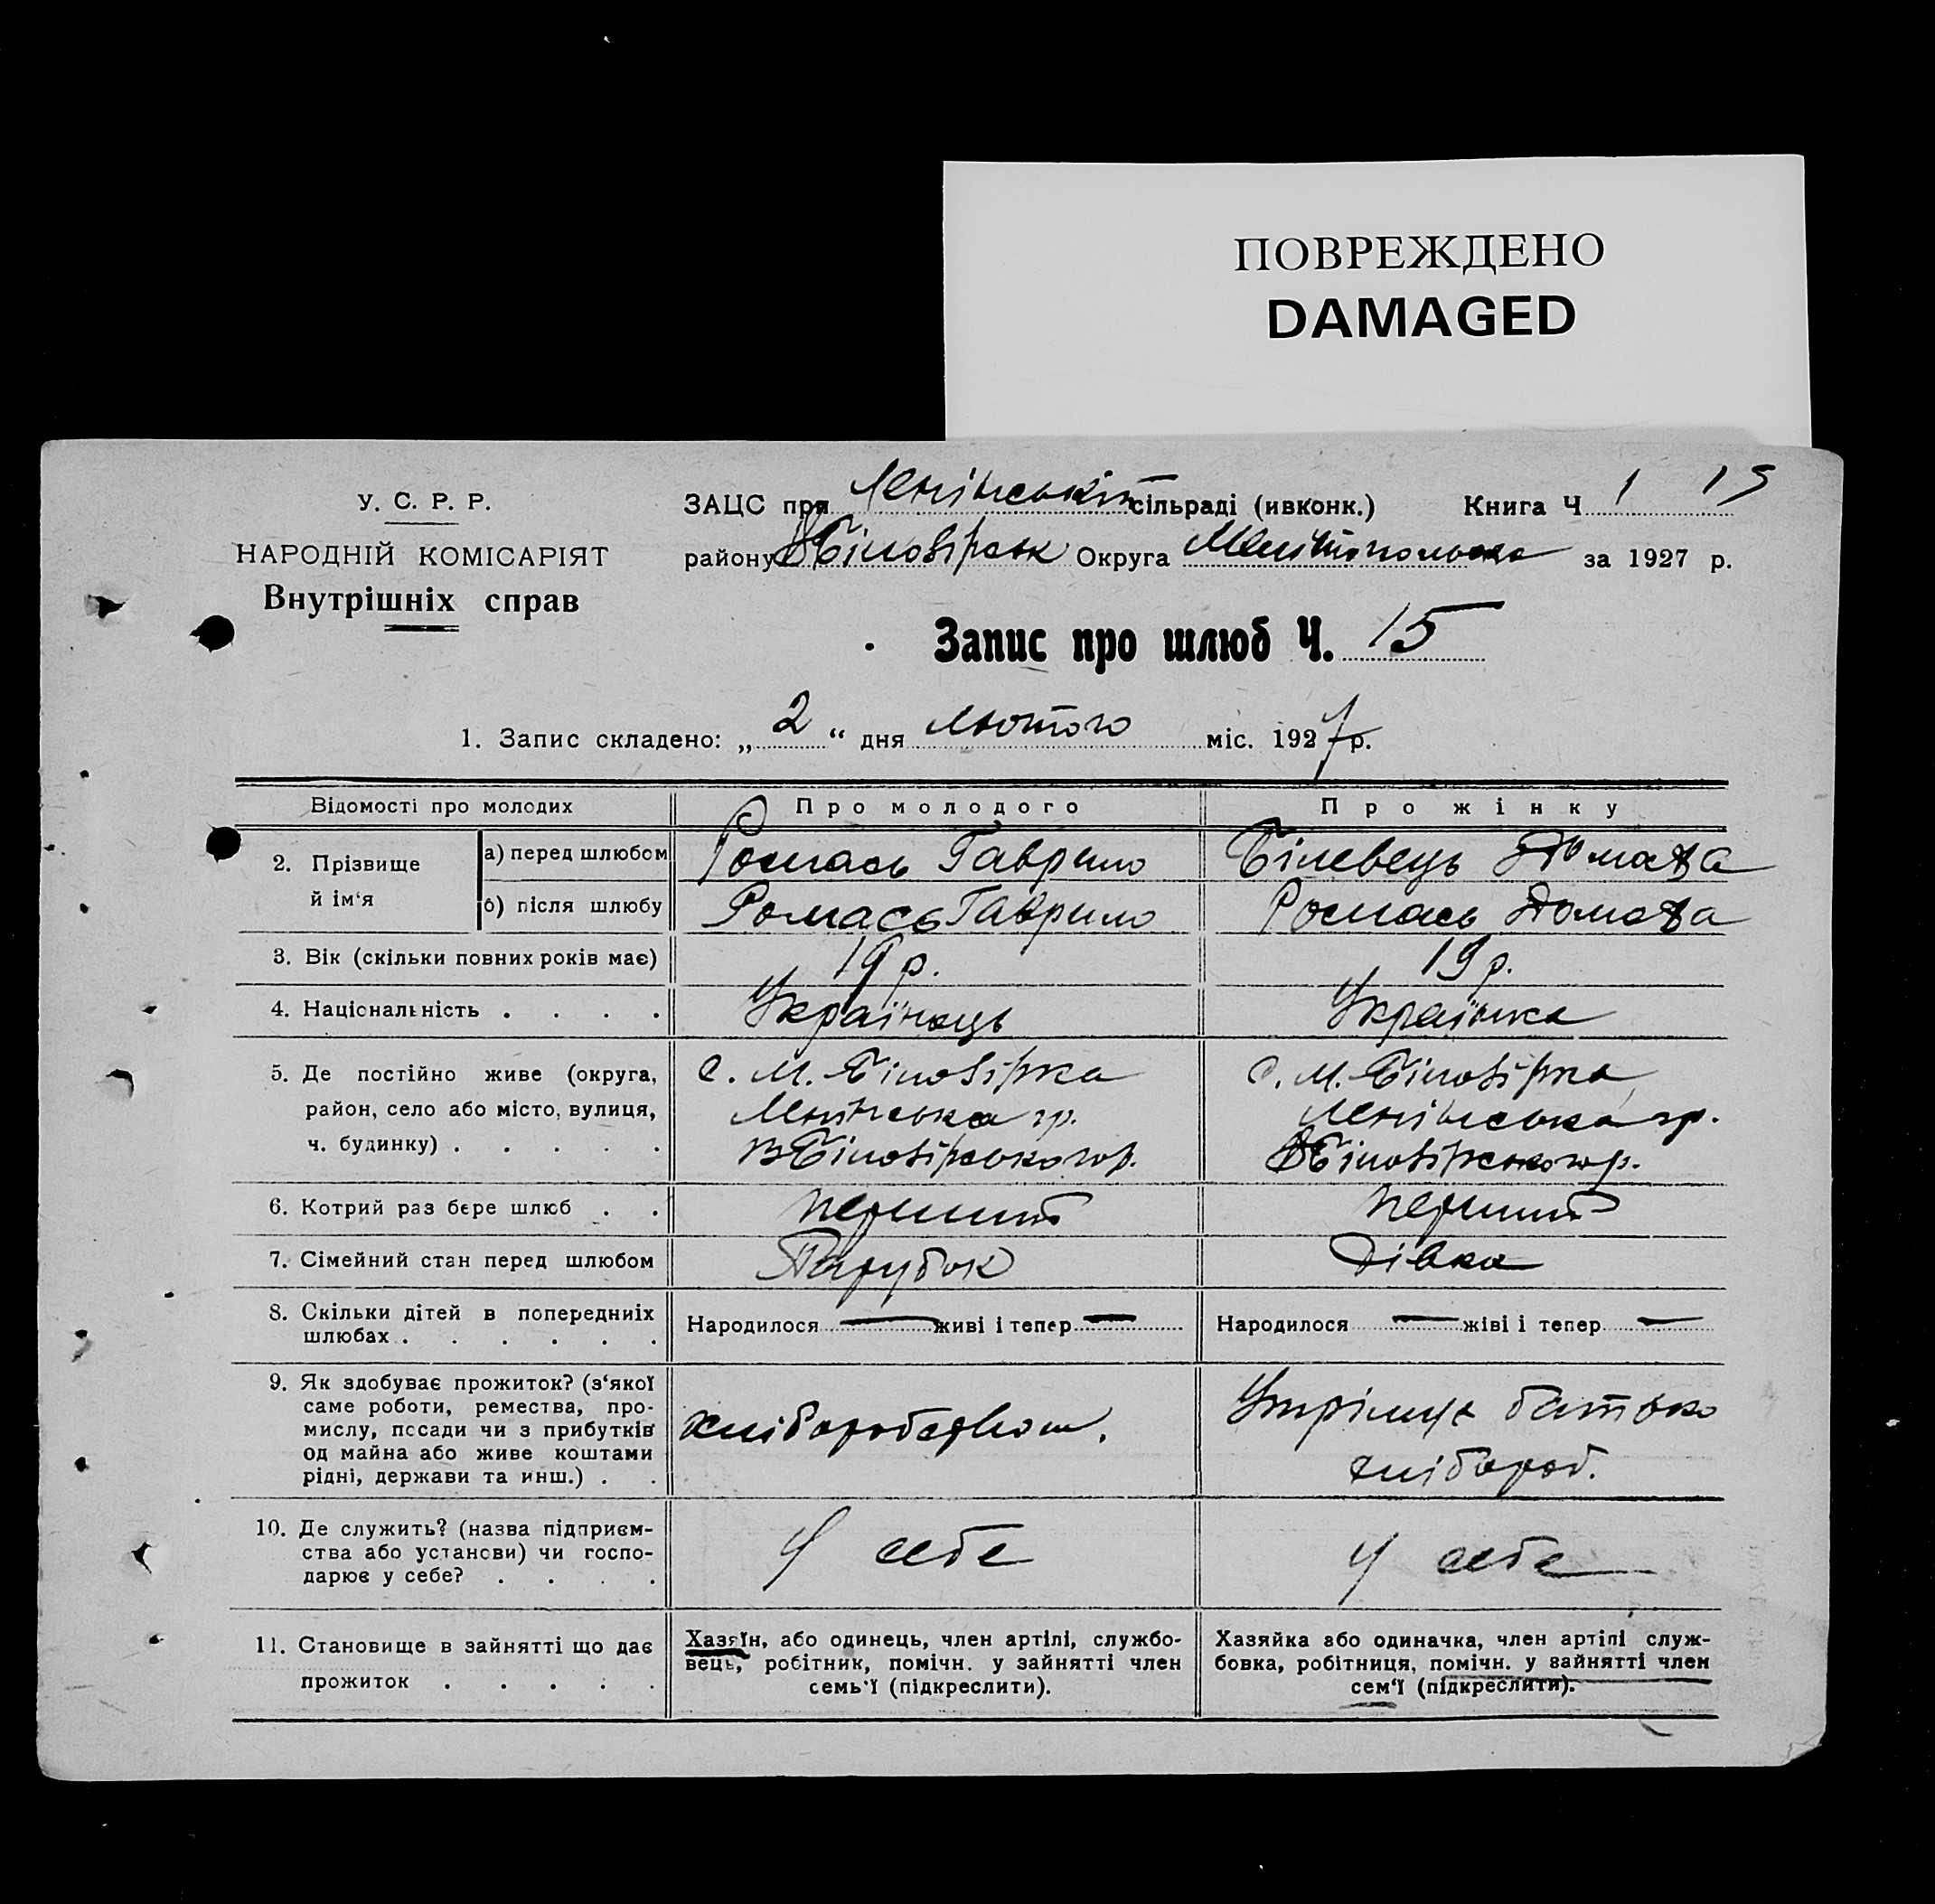 ПОВРЕЖДЕНО
DAMAGED
У. С. Р. Р.
НАРОДНІЙ КОМІСАРІЯТ
Внутрішніх справ
ЗАЦС при Ленінській сільраді (ивконк.) Книга Ч 1 15
району ВБіловірськ Округа Мелітопольська за 1927 р.
Запис про шлюб Ч. 15
1. Запис складено: „2“ дня лютого міс. 1927 р.
Відомості про молодих Про молодого Про жінку
2. Прізвище й ім'я
а) перед шлюбом Ромась Гаврило Білевець Домаха
б) після шлюбу Ромась Гаврило Ромась Домаха
3. Вік (скільки повних років має) 19 р. 19 р.
4. Національність . . . . Українець Українка
5. Де постійно живе (округа, с. М. Біловірка с. М. Біловірка
район, село або місто, вулиця, Ленінська гр. Ленінська гр.
ч. будинку) . . . . . ВБіловірського р. ВБіловірського р.
6. Котрий раз бере шлюб . . перший перший
7. Сімейний стан перед шлюбом Парубок Дівка
8. Скільки дітей в попередниіх Народилося — живі і тепер — Народилося — жіві і тепер —
шлюбах . . . . . .
9. Як здобуває прожиток? (з'якої
саме роботи, ремества, про- Утрімує батько
мислу, посади чи з прибутків хліборобством.
од майна або живе коштами хлібороб.
рідні, держави та инш.) . .
10. Де служить? (назва підприєм-
ства або установи) чи госпо- У себе У себе
дарює у себе? . . . .
11. Становище в зайнятті що дає
прожиток . . . . . .
Хазяїн, або одинець, член артілі, службо-
вець, робітник, помічн. у зайнятті член
семь'ї (підкреслити).
Хазяйка або одиначка, член артілі служ-
бовка, робітниця, помічн. у зайнятті член
сем'ї (підкреслити).